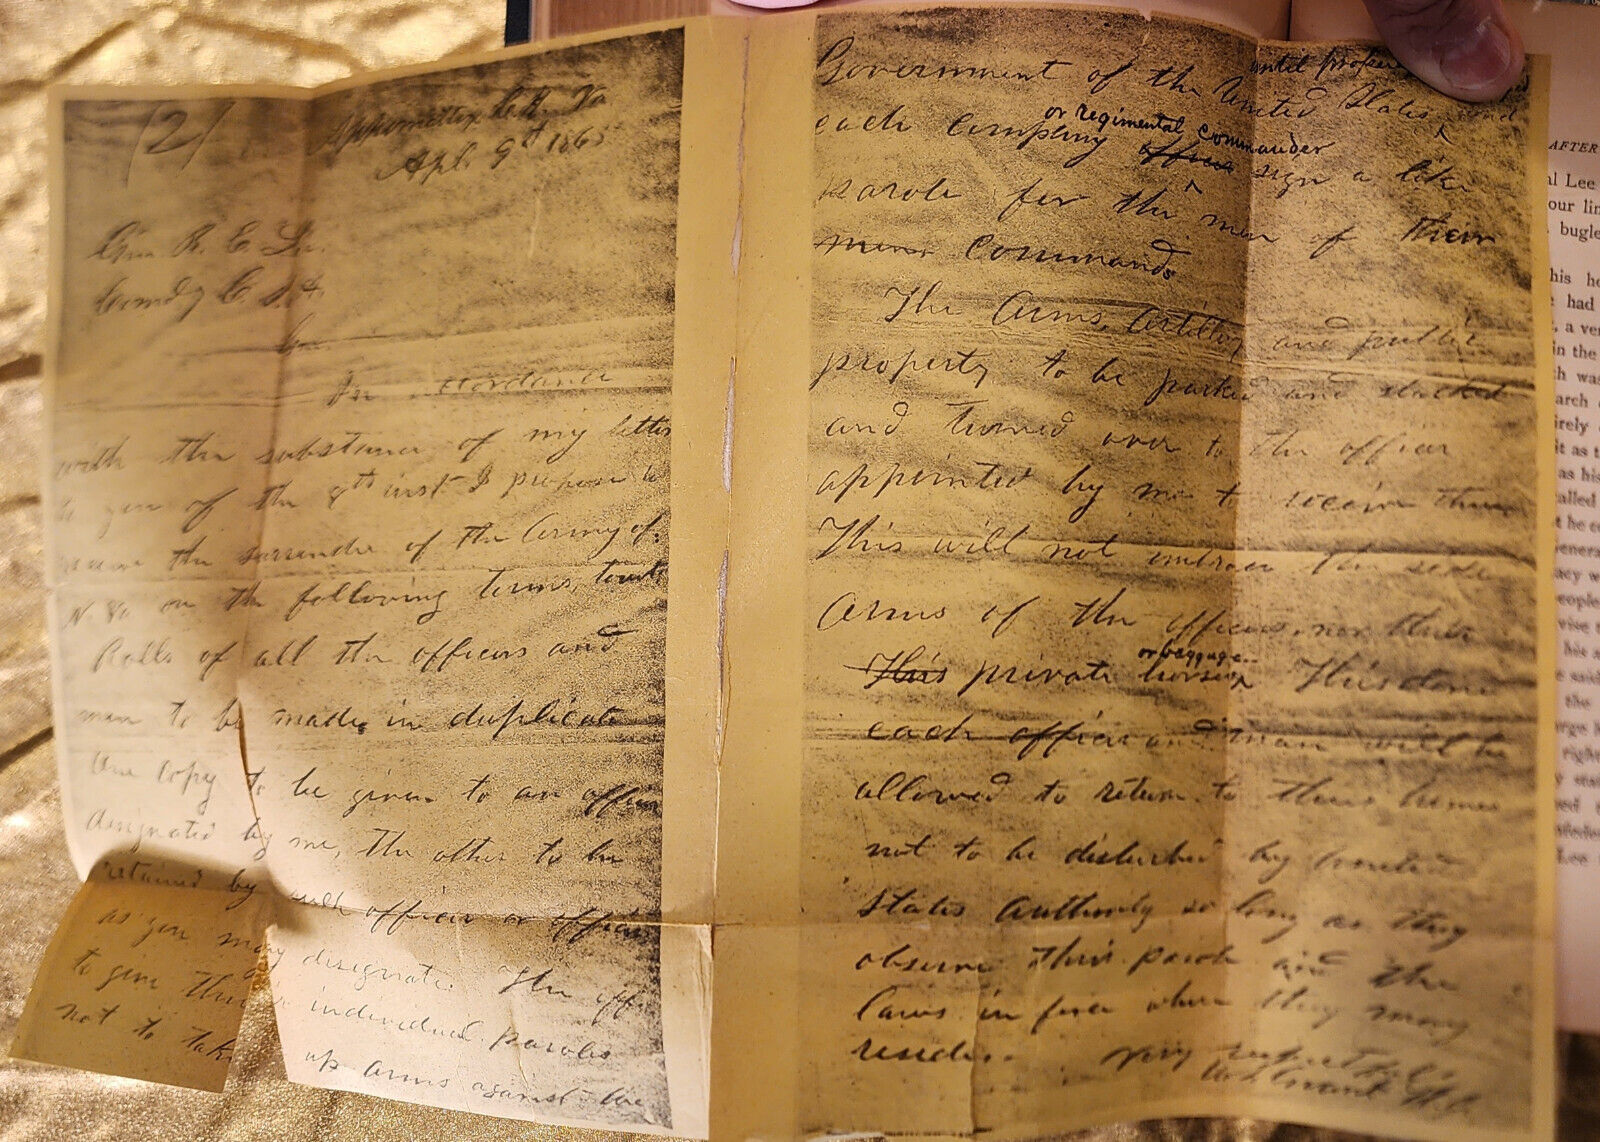 (2)
Appomattox C. H. Va
Apl. 9th 1865
Gen. R. E. Lee
Comdg C. S. A.
Gen.
In accordance
with the substance of my letter
to you of the 8th inst I propose to
receive the surrender of the Army of
N. Va on the following terms, towit
Rolls of all the officers and
men to be made in duplicate
One copy to be given to an officer
designated by me, the other to be
retained by such officer or officers
as you may designate. The offi
to give their individual paroles
not to take up arms against the
Government of the United States until proper and
each company officer or regimental commander sign a like
parole for the men of their
men commands
The Arms, Artillery and public
property to be parked and stacked
and turned over to the officer
appointed by me to receive them
This will not embrace the side
Arms of the officers, nor their
This private horses or baggage. This done
each officer and man will be
allowed to return to their homes
not to be disturbed by United
States Authority so long as they
observe their parole and the
laws in force where they may
reside.
Very respectfully
U. S. Grant
AFTER
al Lee
our lin
bugle
his he
had
, a ver
in the
h was
arch
irely
it as t
as his
alled
t he co
Genera
acy w
people
vise
his a
e said
the
rge
right
y stat
ed
nfeder
Lee